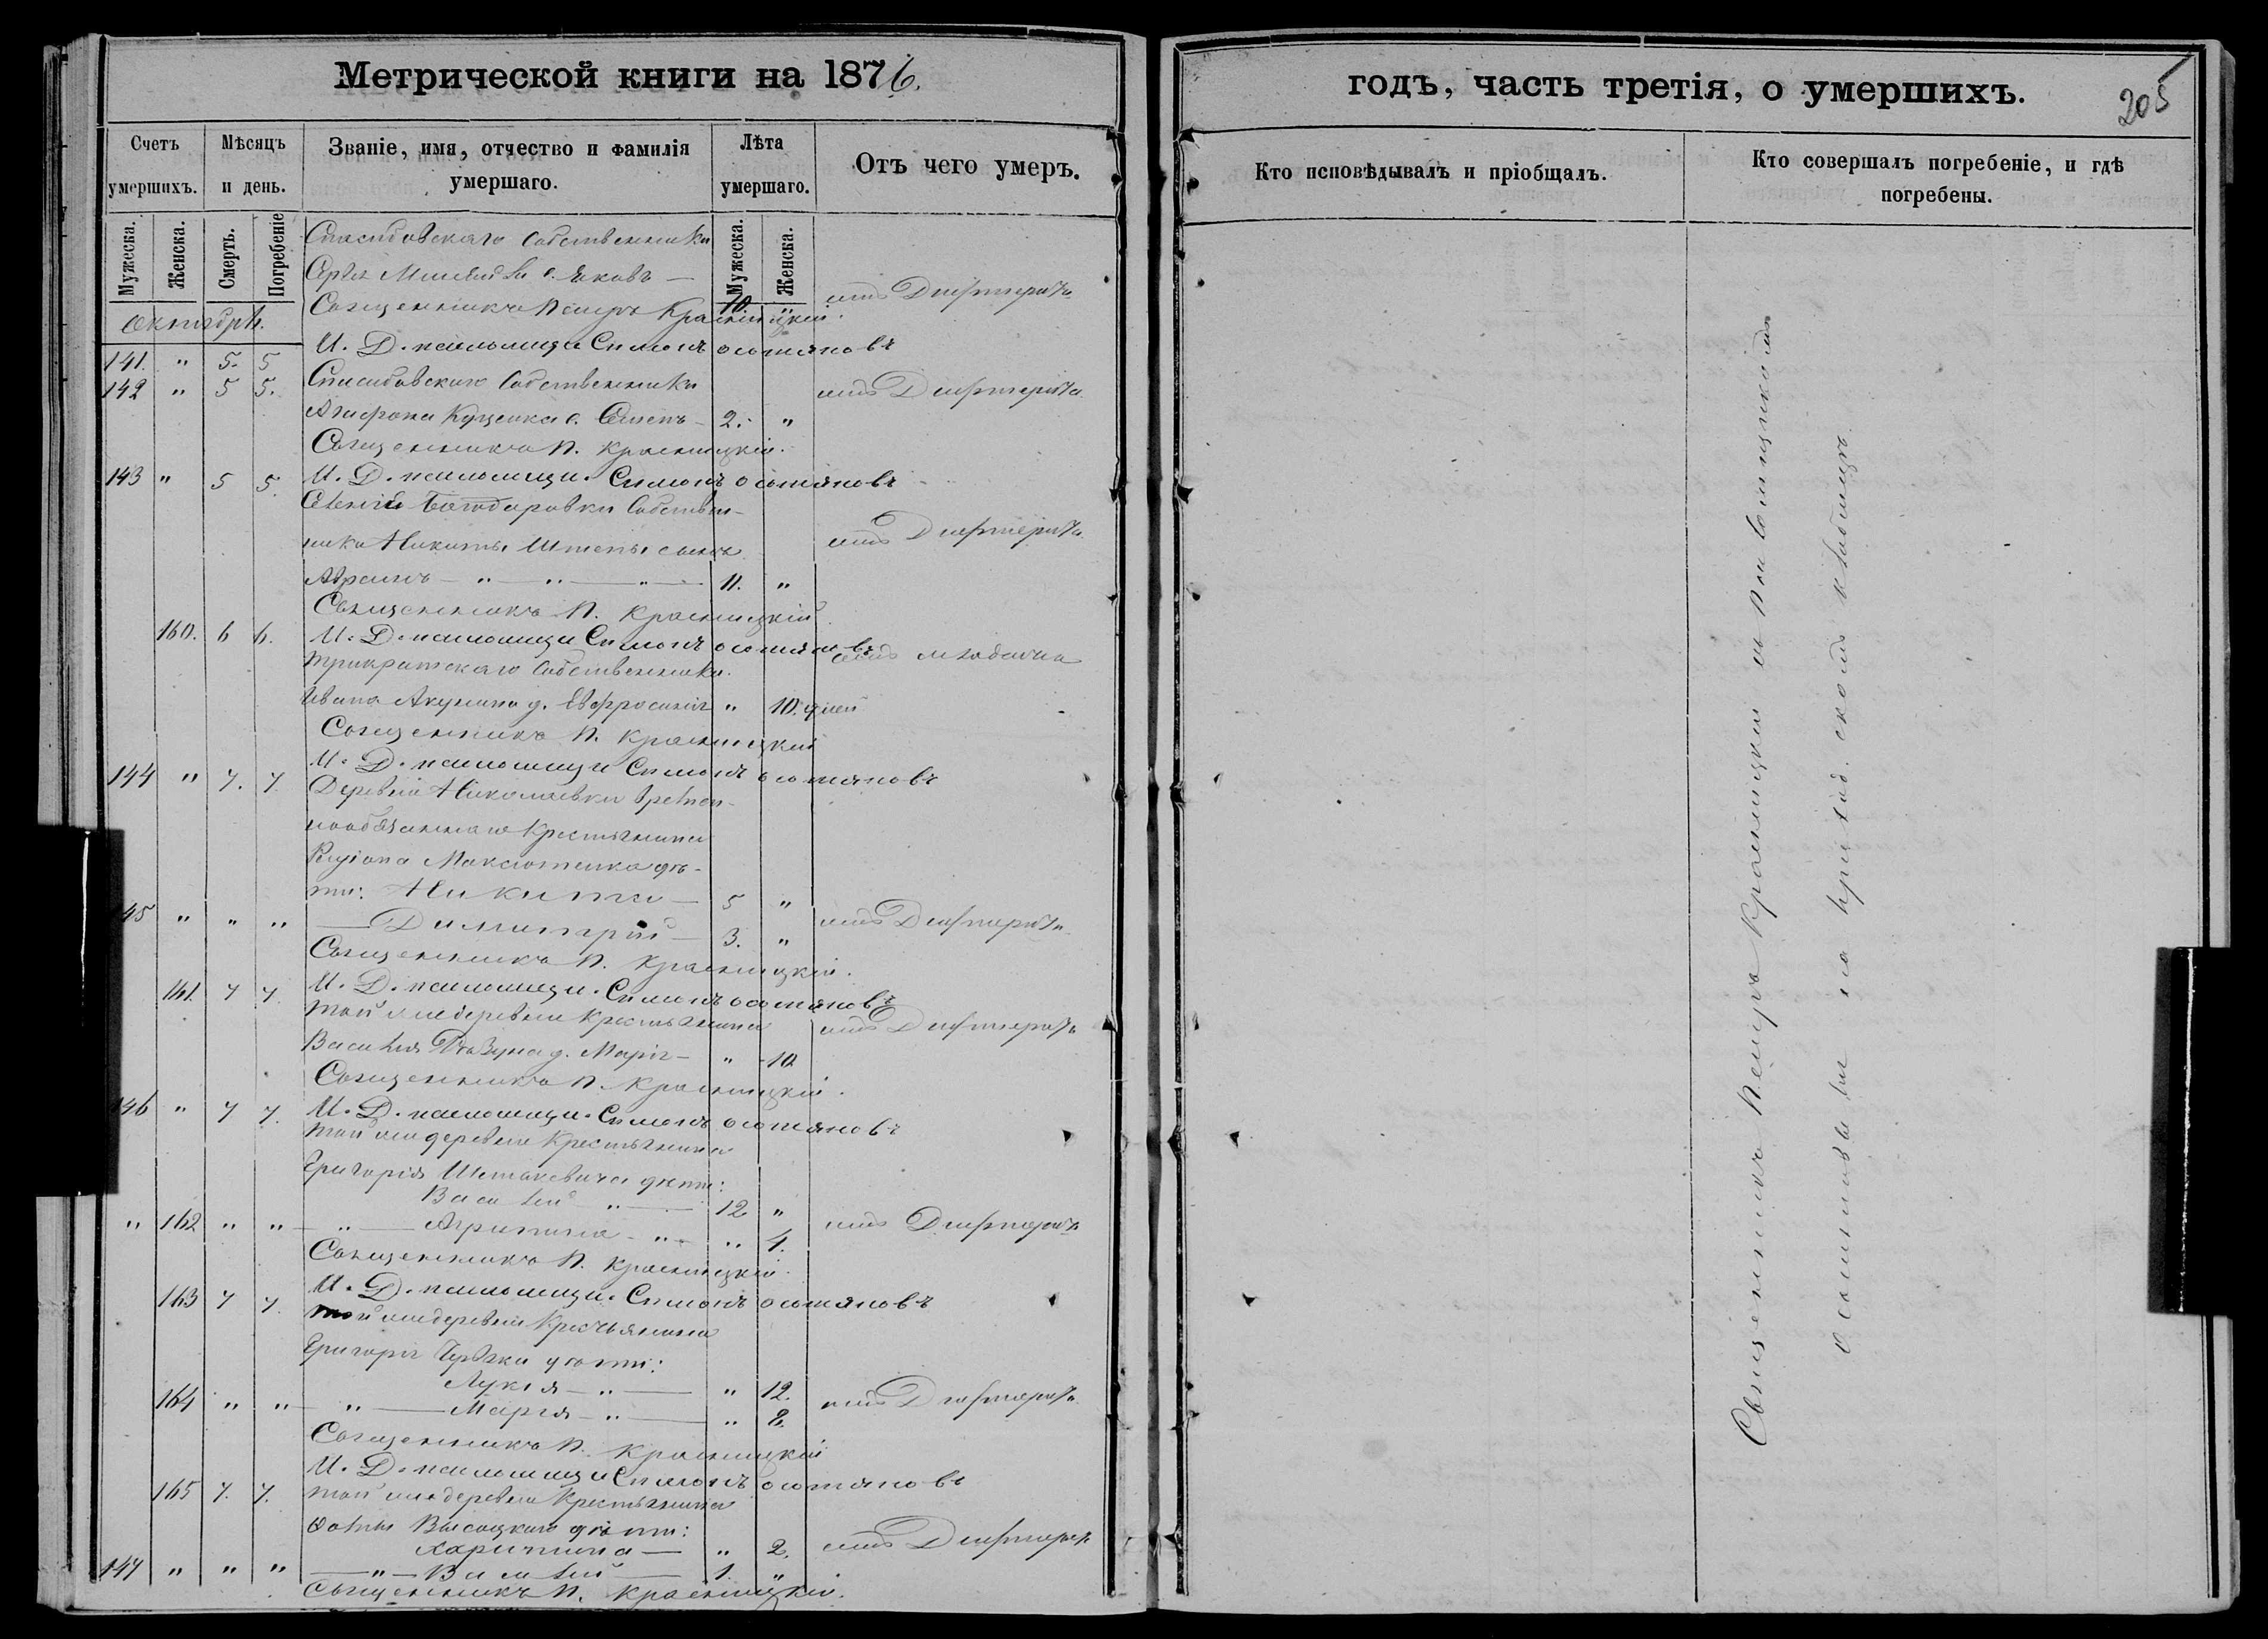 Метрической книги на 1876.
Счетъ умершихъ.
Мѣсяцъ и день.
Званіе, имя, отчество и фамилія умершаго.
Лѣта умершаго.
Отъ чего умеръ.
Мужеска.
Женска.
Смерть.
Погребеніе
Мужеска.
Женска.
Спасибовскаго Собственника
с. Яковъ — 10 " отъ Дифтерита
Священникъ Петръ Красницкій.
Октябрь.
И. Д. псаломщи Симонъ Остяновъ
141. " 5. 5
142 " 5 5. Спасибовскаго Собственника отъ Дифтерита
Агафона Куценка с. Семенъ – 2. "
Священникъ П. Красницкій.
143 " 5 5. И. Д. псаломщи. Симонъ Остяновъ
Собствен-
ника Никиты Штепы сынъ отъ Дифтерита
Авраамъ — " — " — " — 11. "
Священникъ П. Красницкій.
160. 6 6. И. Д. псаломщи Симонъ Остяновъ
Трикратскаго Собственника. отъ младенч
Ивана Акулина д. Евфросинія " 10. дней
Священникъ П. Красницкій
144 " 7. 7 И. Д. псаломщи Симонъ Остяновъ
Деревни Николаевки Времен-
нообязаннаго Крестьянина
Максютенка дѣ-
ти: Никита — 5 "
145 " " " — Димитрій — 3. " отъ Дифтерита
Священникъ П. Красницкій.
161. 7 7 И. Д. псаломщи. Симонъ Остяновъ
той же деревни Крестьянина отъ Дифтерита
Василія д. Марія – " 10
Священникъ П. Красницкій.
146 " 7 7. И. Д. псаломщи. Симонъ Остяновъ
той же деревни Крестьянина
Григорія дѣти:
Василій " — 12 "
" 162 " " — " — Агрипина – " – " 4. отъ Дифтерита
Священникъ П. Красницкій.
163 7 7. И. Д. псаломщи. Симонъ Остяновъ
той же деревни Крестьянина
Григорія дѣти:
Лукія — " — " 12.
164 " " — " — Марія — " — " 8. отъ Дифтерита
Священникъ П. Красницкій
И. Д. псаломщи Симонъ Остяновъ
165 7. 7. той же деревни Крестьянина
Фомы Высоцкаго дѣти:
Харитина — " 2. отъ Дифтер
147 " " " — " — Василій — 1. "
Священникъ П. Красницкій.
годъ, часть третія, о умершихъ.
205
Кто исповѣдывалъ и пріобщалъ.
Кто совершалъ погребеніе, и гдѣ погребены.
Священникъ Петръ Красницкій съ псаломщикомъ
на приход. скомъ кладбищѣ.